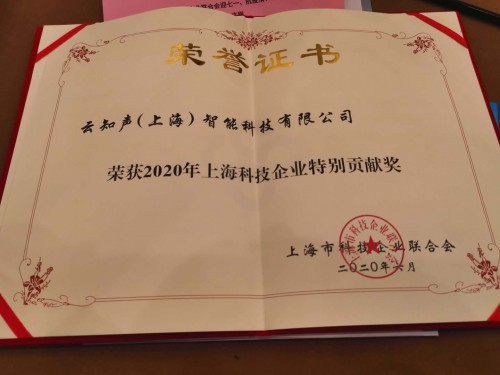 荣誉证书
云知声(上海)智能科技有限公司
荣获2020年上海科技企业特别贡献奖
上海市科技企业联合会
二〇二〇年六月
上海市科技企业联合会